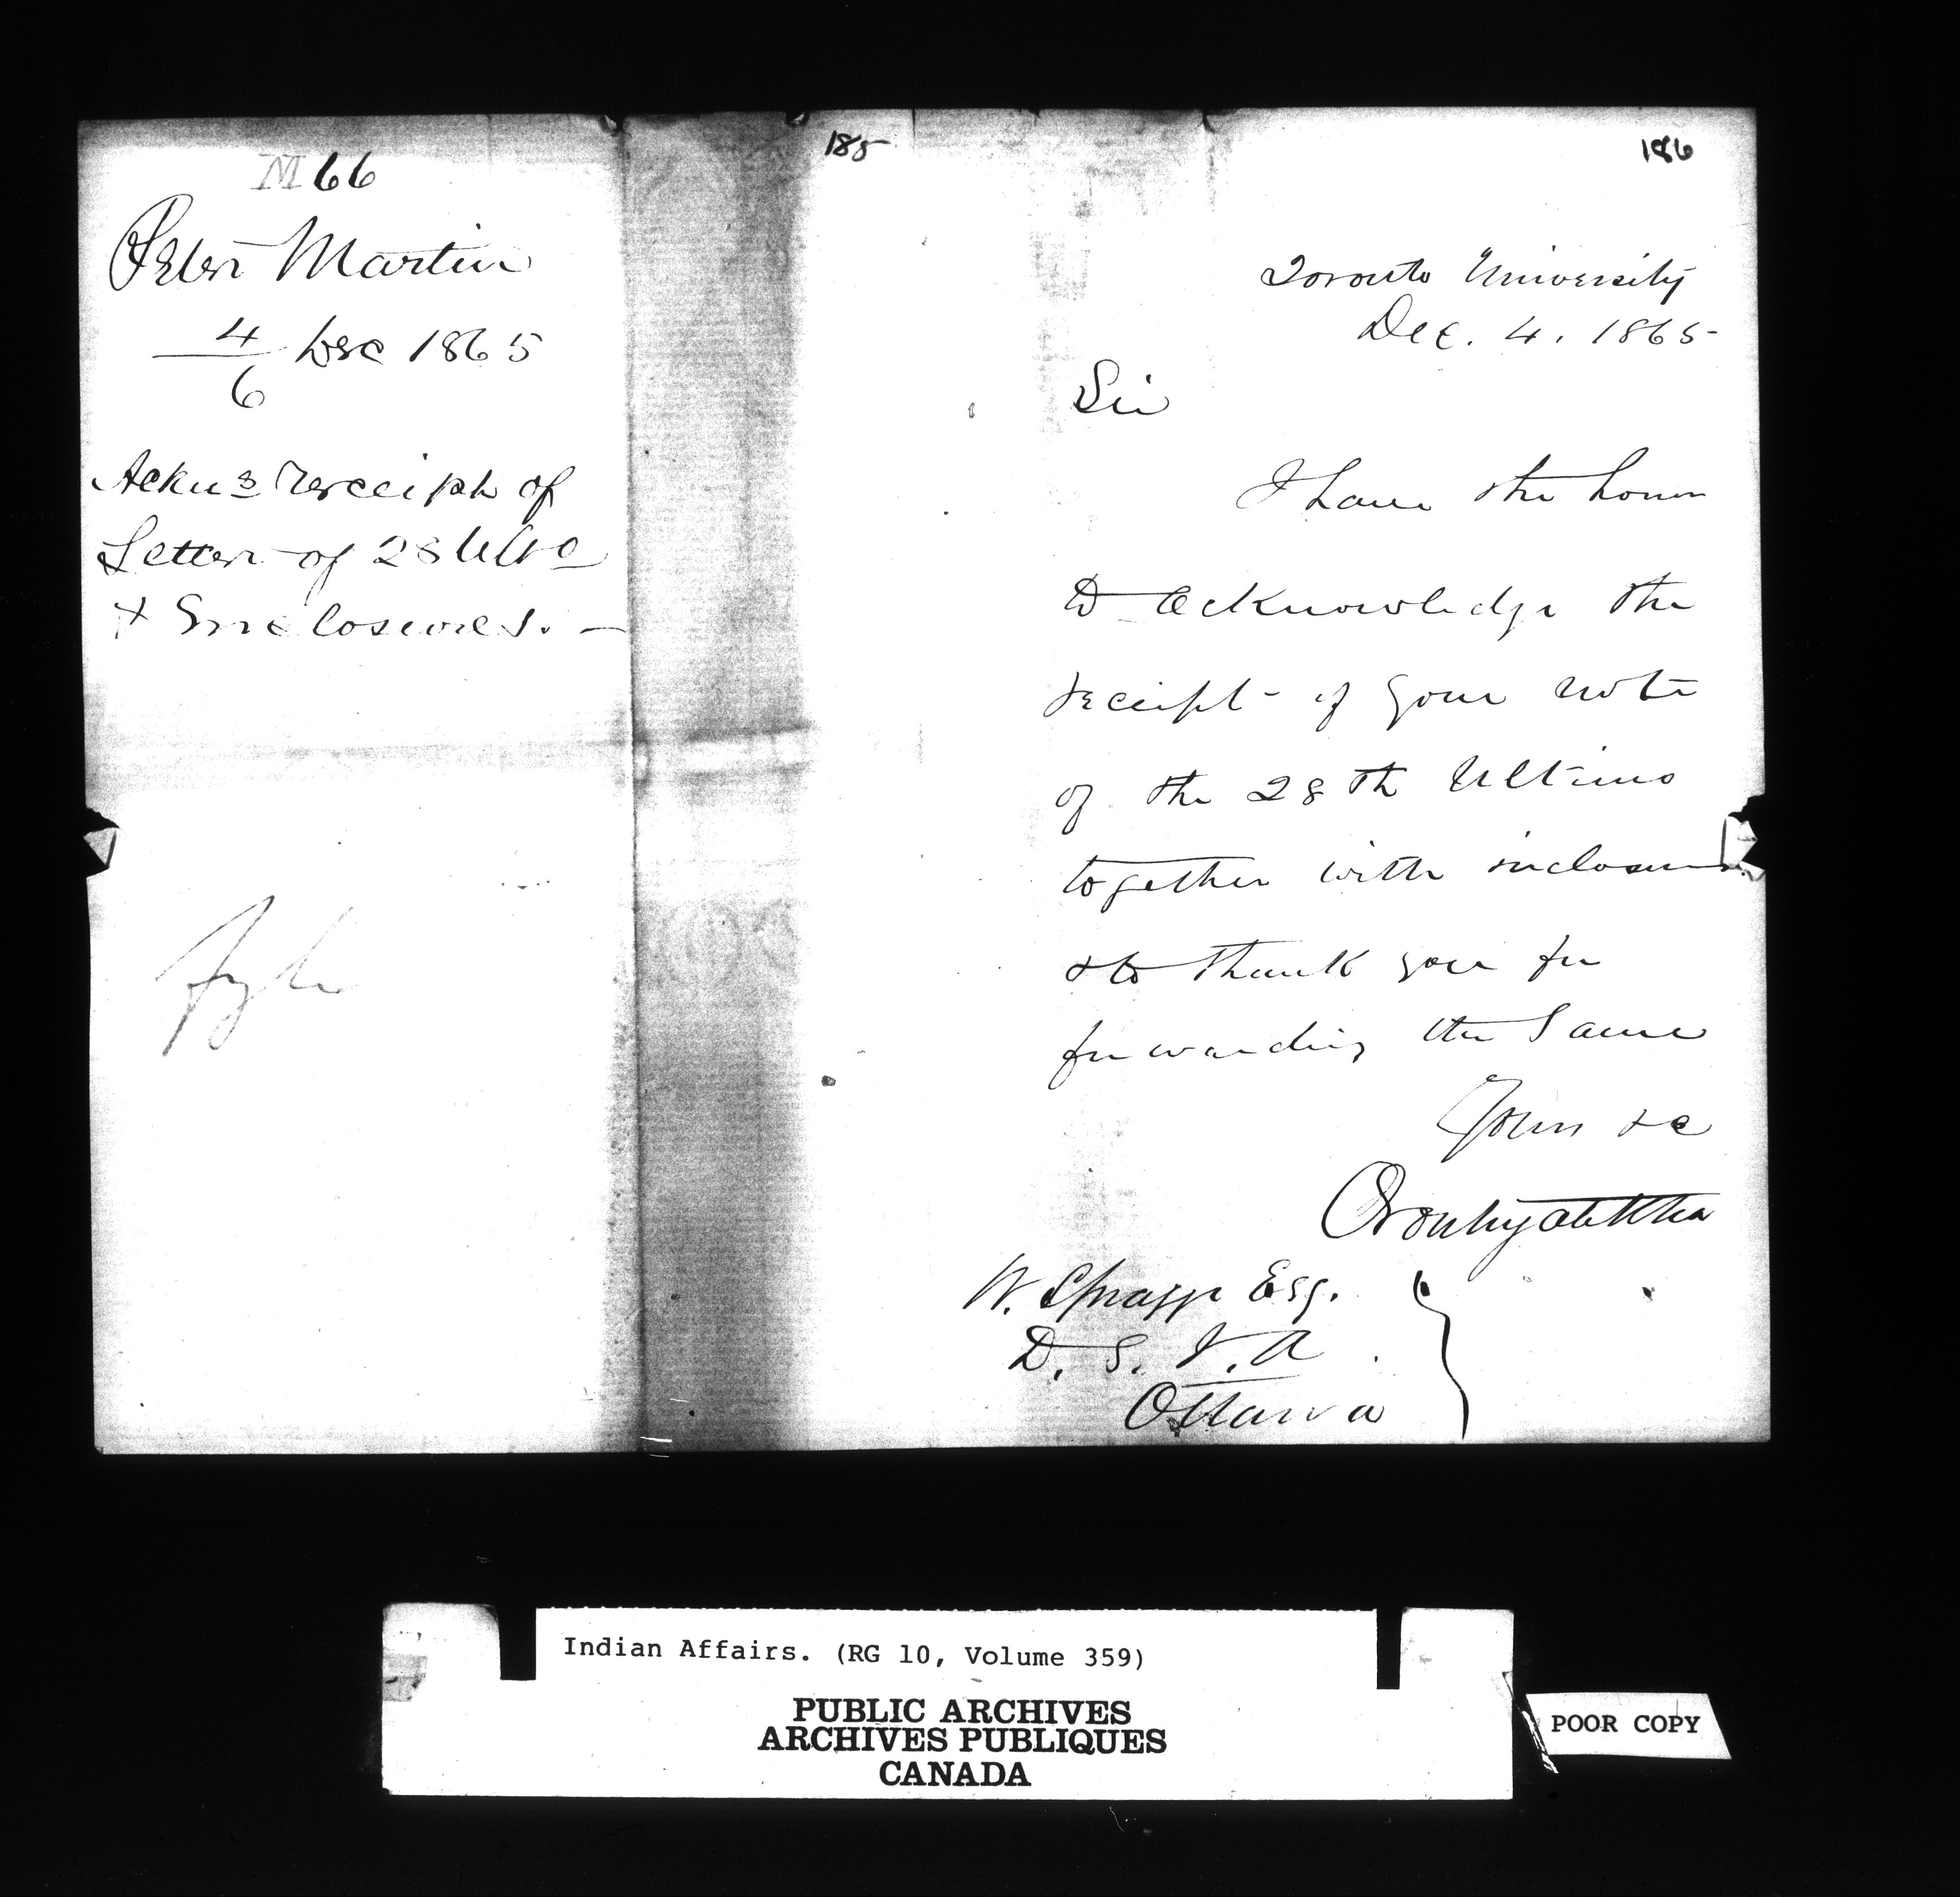 M 66
Peter Martin
4/6 Dec 1865
Ackns receipt of
Letter of 28 Ulto
& Enclosures. —
185
186
Toronto University
Dec. 4. 1865
Sir
I have the honor
to acknowledge the
receipt of your note
of the 28th Ultimo
together with inclosures
& to thank you for
forwarding the same
Yours &c
Oronhyatekha
W. Spragge Esq.
D. S. I. A
Ottawa
Indian Affairs. (RG 10, Volume 359)
PUBLIC ARCHIVES
ARCHIVES PUBLIQUES
CANADA
POOR COPY